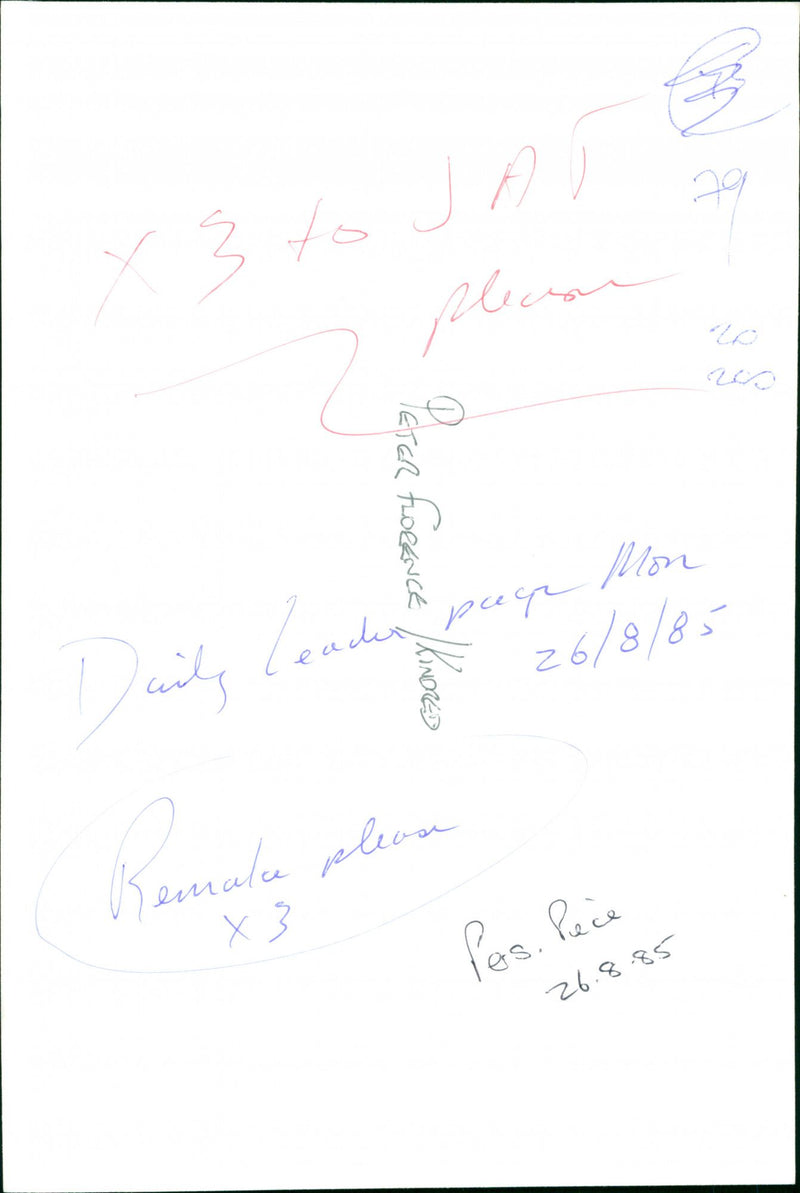 79
X 3 to JAT
please
20
200
PETER FLORENCE / KINDRED
Daily Leader page Mon
26/8/85
Remake please
X 3
Pers. Piece
26.8.85